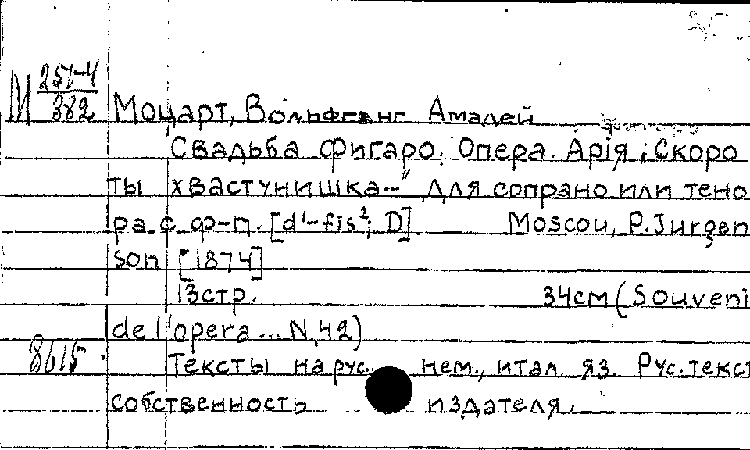 М 257-4
382 Моцарт, Вольфганг Амадей
Свадьба Фигаро. Опера. Арiя „Скоро
ты хвастунишка..." Для сопрано или тено
ра с ф-п. [d¹-fis²; D] Moscou, P. Jurgen
son [1874]
13 стр. 34 см (Souveni
de l'opera... N, 42)
8615. Тексты на рус. нем., итал яз. Рус. текст
собственность издателя.